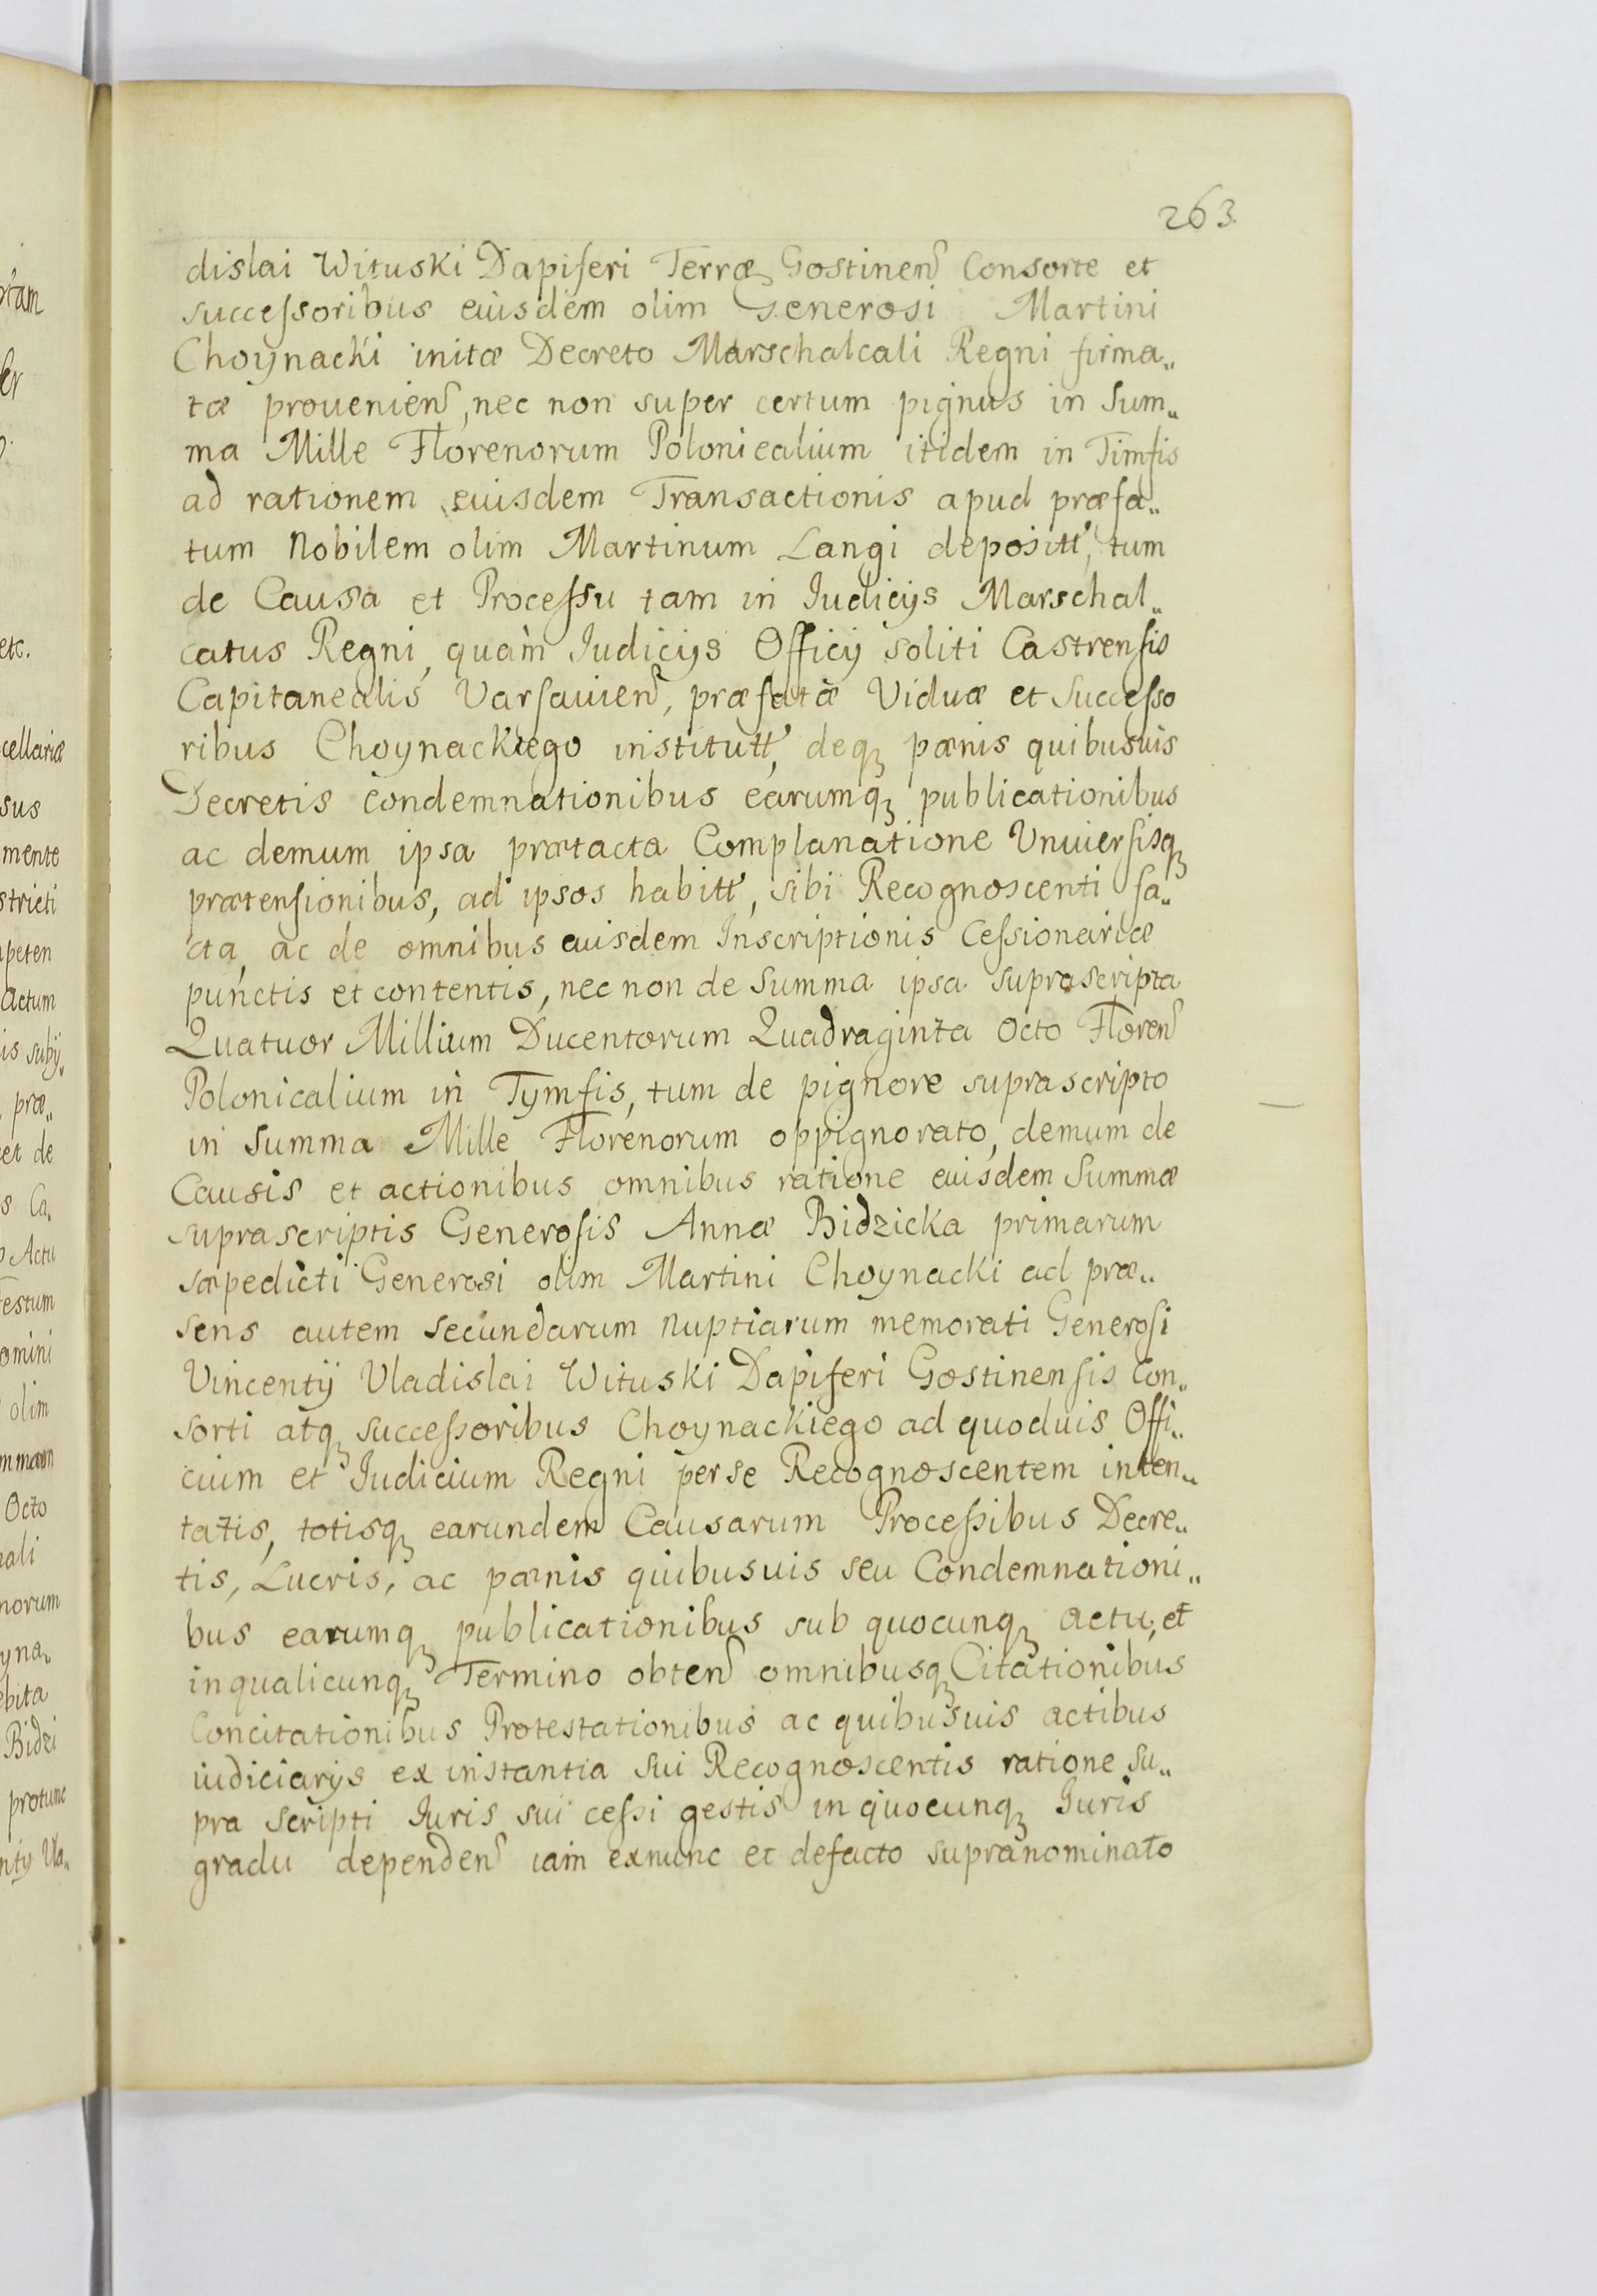 263.
dislai Wituski Dapiferi Terræ Gostinen̄ Consorte et
succeſsoribus eiusdem olim Generosi Martini
Choynacki initæ Decreto Marschalcali Regni firma„
tæ prouenien̄, nec non super certum pignus in Sum„
ma Mille Florenorum Polonicalium itidem in Timfis
ad rationem eiusdem Transactionis apud præfa„
tum Nobilem olim Martinum Langi depositt, tum
de Causa et Proceſsu tam in Iudicijs Marschal„
catus Regni, quàm Iudicijs Officij soliti Castrenſis
Capitanealis Varſauien̄, præfatæ Viduæ et Succeſso
ribus Choynackiego institutt, deqꝫ pœnis quibusuis
Decretis condemnationibus earumqꝫ publicationibus
ac demum ipsa prætacta Complanatione Vniuerſisqꝫ
prætenſionibus, ad ipsos habitt, sibi Recognoscenti fa„
cta, ac de omnibus eiusdem Inscriptionis Ceſsionariæ
punctis et contentis, nec non de Summa ipsa supra scripta
Quatuor Millium Ducentorum Quadraginta Octo Floren̄
Polonicalium in Tymfis, tum de pignore suprascripto
in Summa Mille Florenorum oppignorato, demum de
Causis et actionibus omnibus ratione eiusdem Summæ
suprascriptis Generoſis Annæ Bidzicka primarum
sæpedicti Generosi olim Martini Choynacki ad præ„
sens autem secundarum nuptiarum memorati Generoſi
Vincentij Vladislai Wituski Dapiferi Gostinenſis Con„
sorti atqꝫ succeſsoribus Choynackiego ad quoduis Offi„
cium et Iudicium Regni per se Recognoscentem inten„
tatis, totisqꝫ earundem Causarum Proceſsibus Decre„
tis, Lucris, ac pœnis quibusuis seu Condemnationi„
bus earumqꝫ publicationibus sub quocunqꝫ actu, et
in qualicunqꝫ Termino obten̄ omnibusqꝫ Citationibus
Concitationibus Protestationibus ac quibusuis actibus
iudiciarijs ex instantia sui Recognoscentis ratione su„
pra scripti Iuris sui ceſsi gestis in quocunqꝫ Iuris
gradu dependen̄ iam exnunc et defacto supranominato